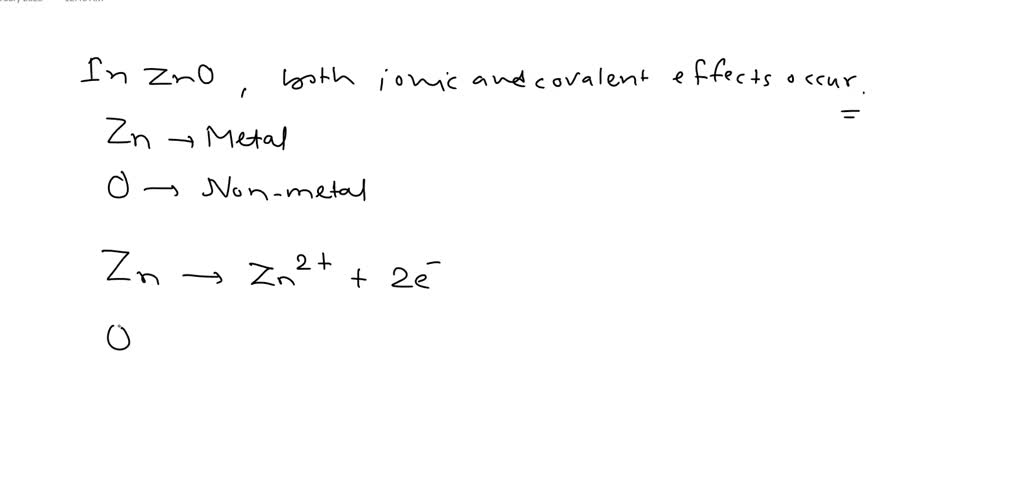 In ZnO, both ionic and covalent effects occur.
Zn → Metal
O → Non-metal
Zn → Zn²⁺ + 2e⁻
O